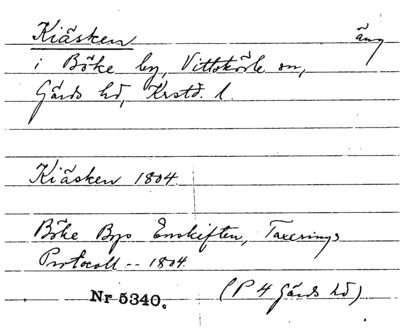 Kiäsken äng
i Böke by, Vittskövle sn,
Gärds hd, Krstd. l.
Kiäsken 1804.
Böke Bys Enskiften, Taxerings
Protocoll -- 1804.
Nr 5340. (P 4 Gärds hd)